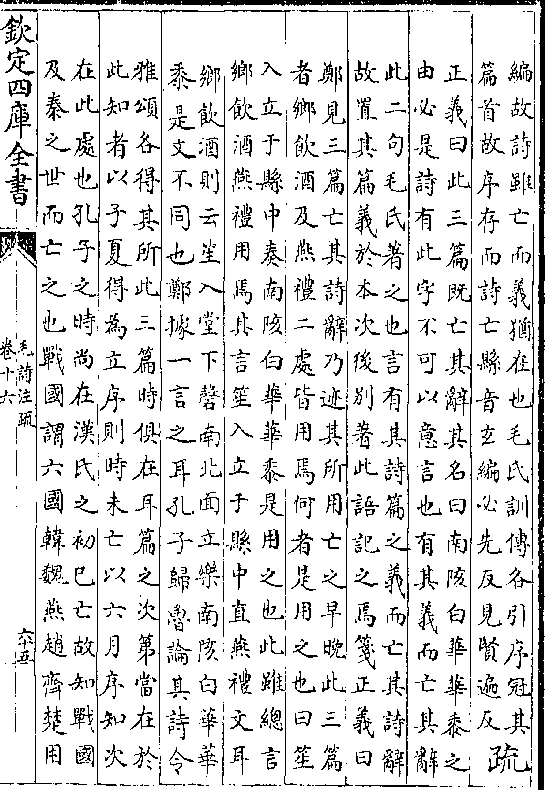 編故詩雖亡而義猶在也毛氏訓傳各引序冠其
篇首故序存而詩亡縣音玄編必先反見賢遍反
疏
正義曰此三篇既亡其辭其名曰南陔白華華黍之
由必是詩有此字不可以意言也有其義而亡其辭
此二句毛氏著之也言有其詩篇之義而亡其詩辭
故置其篇義於本次後別著此語記之焉箋正義曰
鄭見三篇亡其詩辭乃迹其所用亡之早晚此三篇
者鄉飲酒及燕禮二處皆用焉何者是用之也曰笙
入立于縣中奏南陔白華華黍是用之也此雖總言
鄉飲酒燕禮用焉其言笙入立于縣中直燕禮文耳
鄉飲酒則云笙入堂下磬南北面立樂南陔白華華
黍是文不同也鄭據一言之耳孔子歸魯論其詩令
雅頌各得其所此三篇時俱在耳篇之次第當在於
此知者以子夏得為立序則時未亡以六月序知次
在此處也孔子之時尚在漢氏之初已亡故知戰國
及秦之世而亡之也戰國謂六國韓魏燕趙齊楚用
欽定四庫全書
毛詩注疏
卷十六
六十五